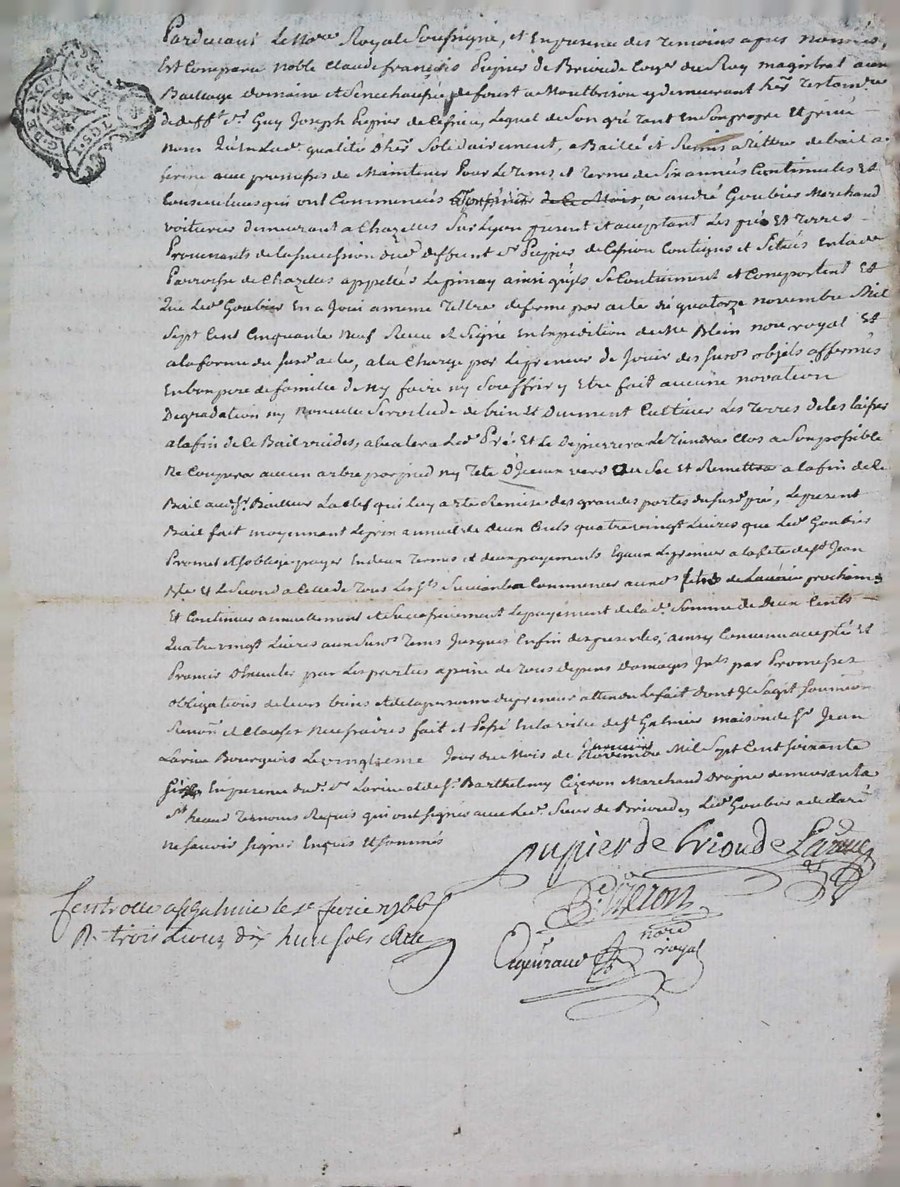 Pardevant le no.re Royal Soussigné, et En presence des temoins apres nommés,
Est Comparu noble Claude françois Pupier de Brioude Con.er du Roy magistrat aux
Baillage Domaine et Senechaussée de forest a Montbrison y demeurant h.er testam.re
de deff.t S.r Guy Joseph Pupier de Lequel de Son gré tant En Son propre Et privé
nom qu'En lad.e qualité d'her.r Solidairement, a Baillé et Remis a tittre de bail a
ferme avec promesses de Maintenir Pour le tems et terme de Six années Continuelles Et
Consecutives qui ont Commencés de Ce Mois, a andré Goubier Marchand
voiturier demeurant a Chazelles Sur Lyon present et acceptant Les prés Et terres
Provenants de la Succession dud. deffunt S.r Pupier de Contigus et Situés En lad.e
Parroisse de Chazelles appellés Lepinay ainsi qu'ils Se Contiennent et Comportent Et
que led. Goubier En a Joui a meme tittre de ferme par acte du quatorze novembre Mil
Sept Cent Cinquante Neuf Receu et Signé En Expedition du Me Blein no.re royal Et
a la forme du Susd. acte, a la Charge par le preneur de Jouir des Susd. objets affermés
En bon pere de famille de n'y faire ny Souffrir y Etre fait aucune novation
Degradation ny Nouvelle Servitude de bien Et Duement Cultiver Les terres de les laisser
a la fin de Ce Bail vuides, led. Pré Et Le tiendra Clos a Son possible
Ne Couppera aucun arbre par pied ny tete D'Iceux verd ou Sec Et Remettra a la fin de Ce
Bail aud. S.r Bailleur La Clef qui luy a ete Remise des grandes portes du Susd. pré, Le present
Bail fait moyennant Le prix annuel de deux Cents quatre vingt Livres que Led. Goubier
Promet et S'oblige payer En deux termes et deux payements Egaux Le premier a la fete de S.t Jean
B.te Et Le Second a Celle de tous Les S.ts Suivante a Commencer aux fetes de Lannée prochaine
Et Continuer annuellement et Successivement Le payement de lad.e Somme de Deux Cents
Quatre vingt Livres aux Susd. tems Jusques En fin des presentes, ainsy Convenu accepté Et
Promis observer par Les parties a peine de tous depens Domages Int.s par Promesses
obligations de leurs biens et de la personne du preneur attendu Le fait dont Il S'agit Soumission
Renon.on et Clauses Necessaires fait et Passé En la ville de S.t Galmier maison de S.r Jean
Larue Bourgeois Le vingtieme Jour du Mois de Janvier Mil Sept Cent Soixante
Six En presence dud. S.r Larue et de S.r Barthelmy Cizeron Marchand Drapier demeurant a
S.t heand temoins Requis qui ont Signés avec led. Sieur de Brioude, Led. Goubier a declaré
ne Savoir Signer Enquis Et Sommés
Pupier de Brioude Larue
B. Cizeron
no.re
royal
Controllé a S.t Galmier le 1er fevrier 1766
R. trois Livres dix huit Sols